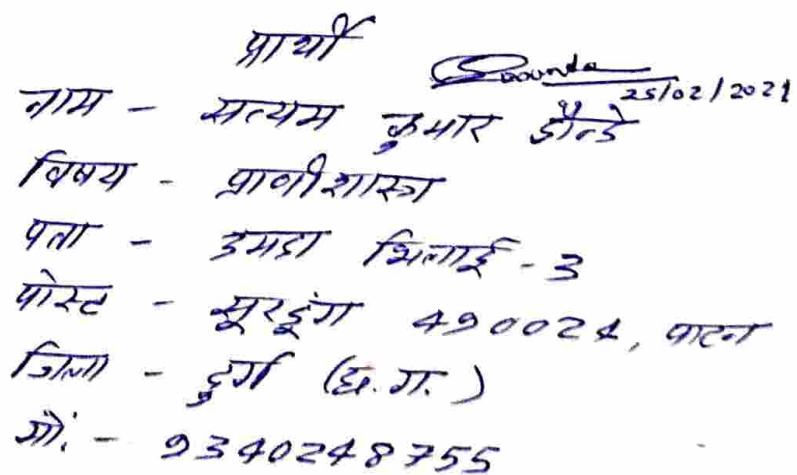 प्रार्थी
25/02/2021
नाम - सत्यम कुमार डौन्डे
विषय - प्राणीशास्त्र
पता - उमदा भिलाई - 3
पोस्ट - सूरडूंग 490024, पाटन
जिला - दुर्ग (छ.ग.)
मो. - 9340248755